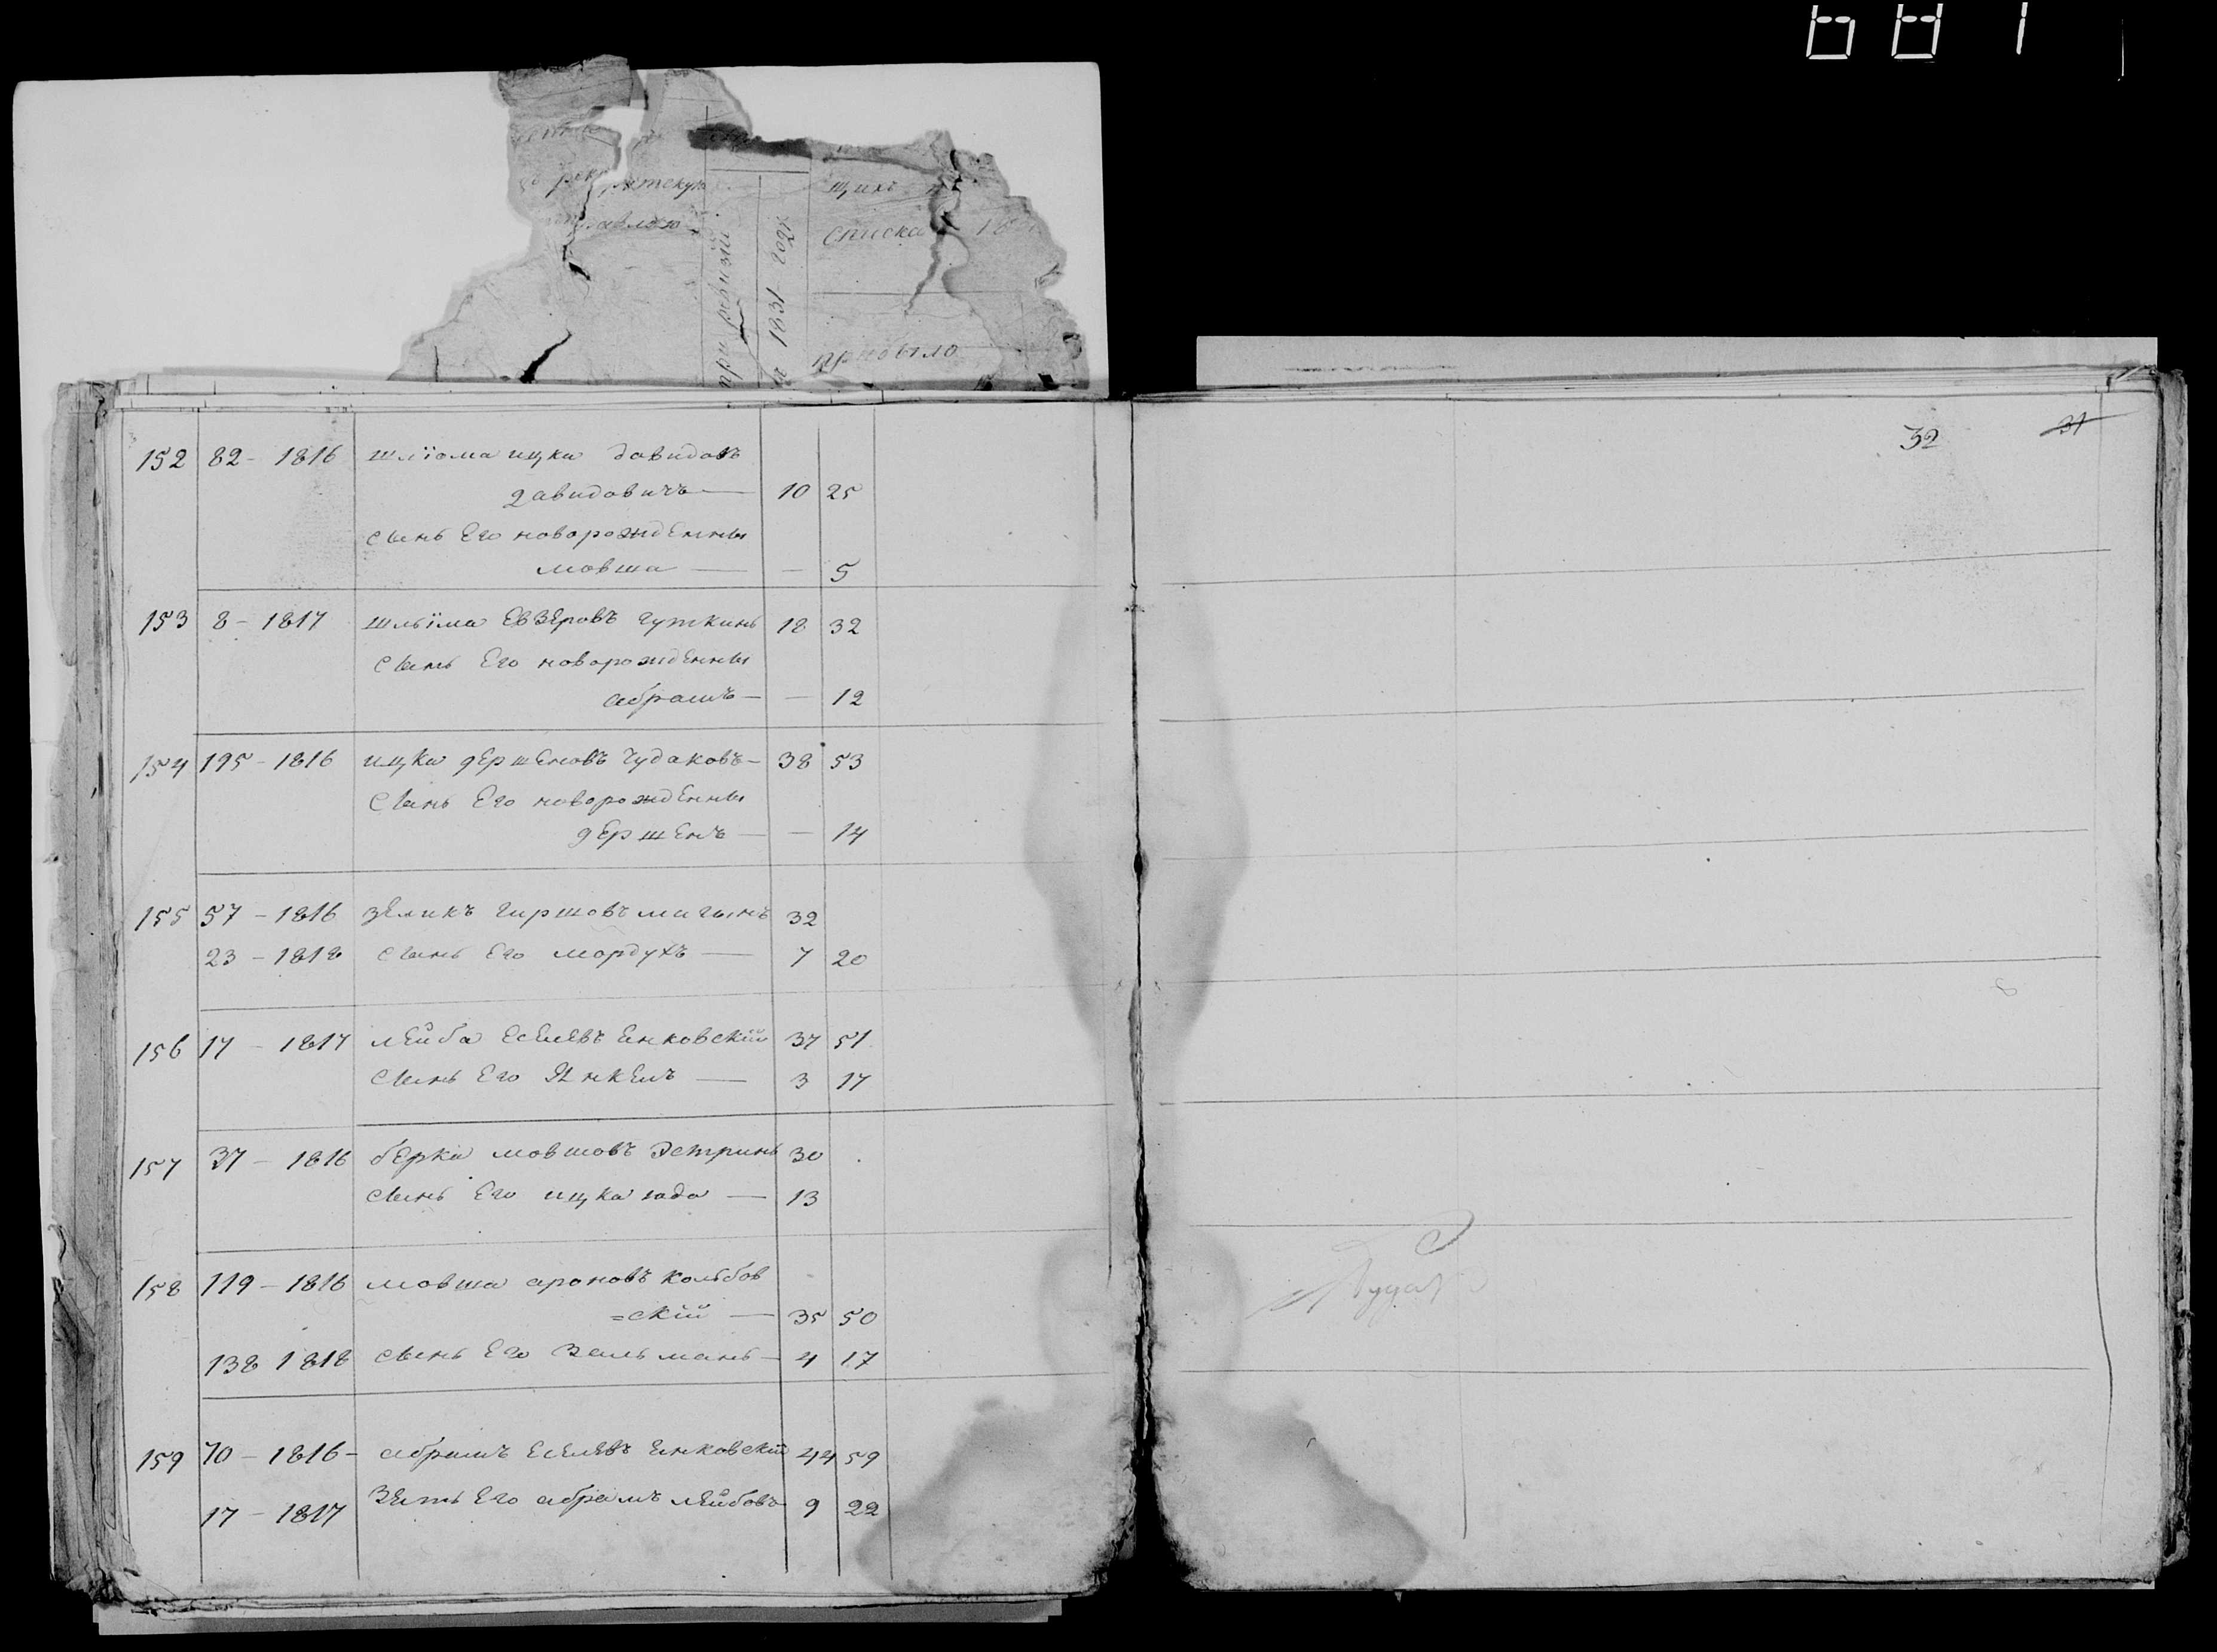 681
рекрутскую
щихъ
списка
при ревизии
1831 года
прибыло
32 31
152 82 - 1816 шлїома ицка давидовъ
давидовичъ — 10 25
сынъ Его новорожденны
мовша — — 5
153 8 - 1817 шлыїма Евзеровъ гуткинъ 18 32
сынъ Его новорожденны
абрамъ — — 12
154 195 - 1816 ицка гершеновъ чудаковъ - 38 53
сынъ Его новорожденны
гершенъ — — 14
155 57 - 1816 зеликъ гиршовъ магынъ 32
23 - 1818 сынъ Его мордухъ — 7 20
156 17 - 1817 лейба Еселевъ Енковскїй 37 51
сынъ Его Янкель — 3 17
157 37 - 1816 берка мовшовъ Эстринъ 30
сынъ Его ицка юда — 13
158 119 - 1816 мовша ароновъ колбов
=скїй — 35 50
138 1818 сынъ Его Зельманъ - 4 17
159 70 - 1816 - абрамъ Еселевъ Енковскїй 44 59
17 - 1817 Зеть Его абрамъ лейбовъ 9 22